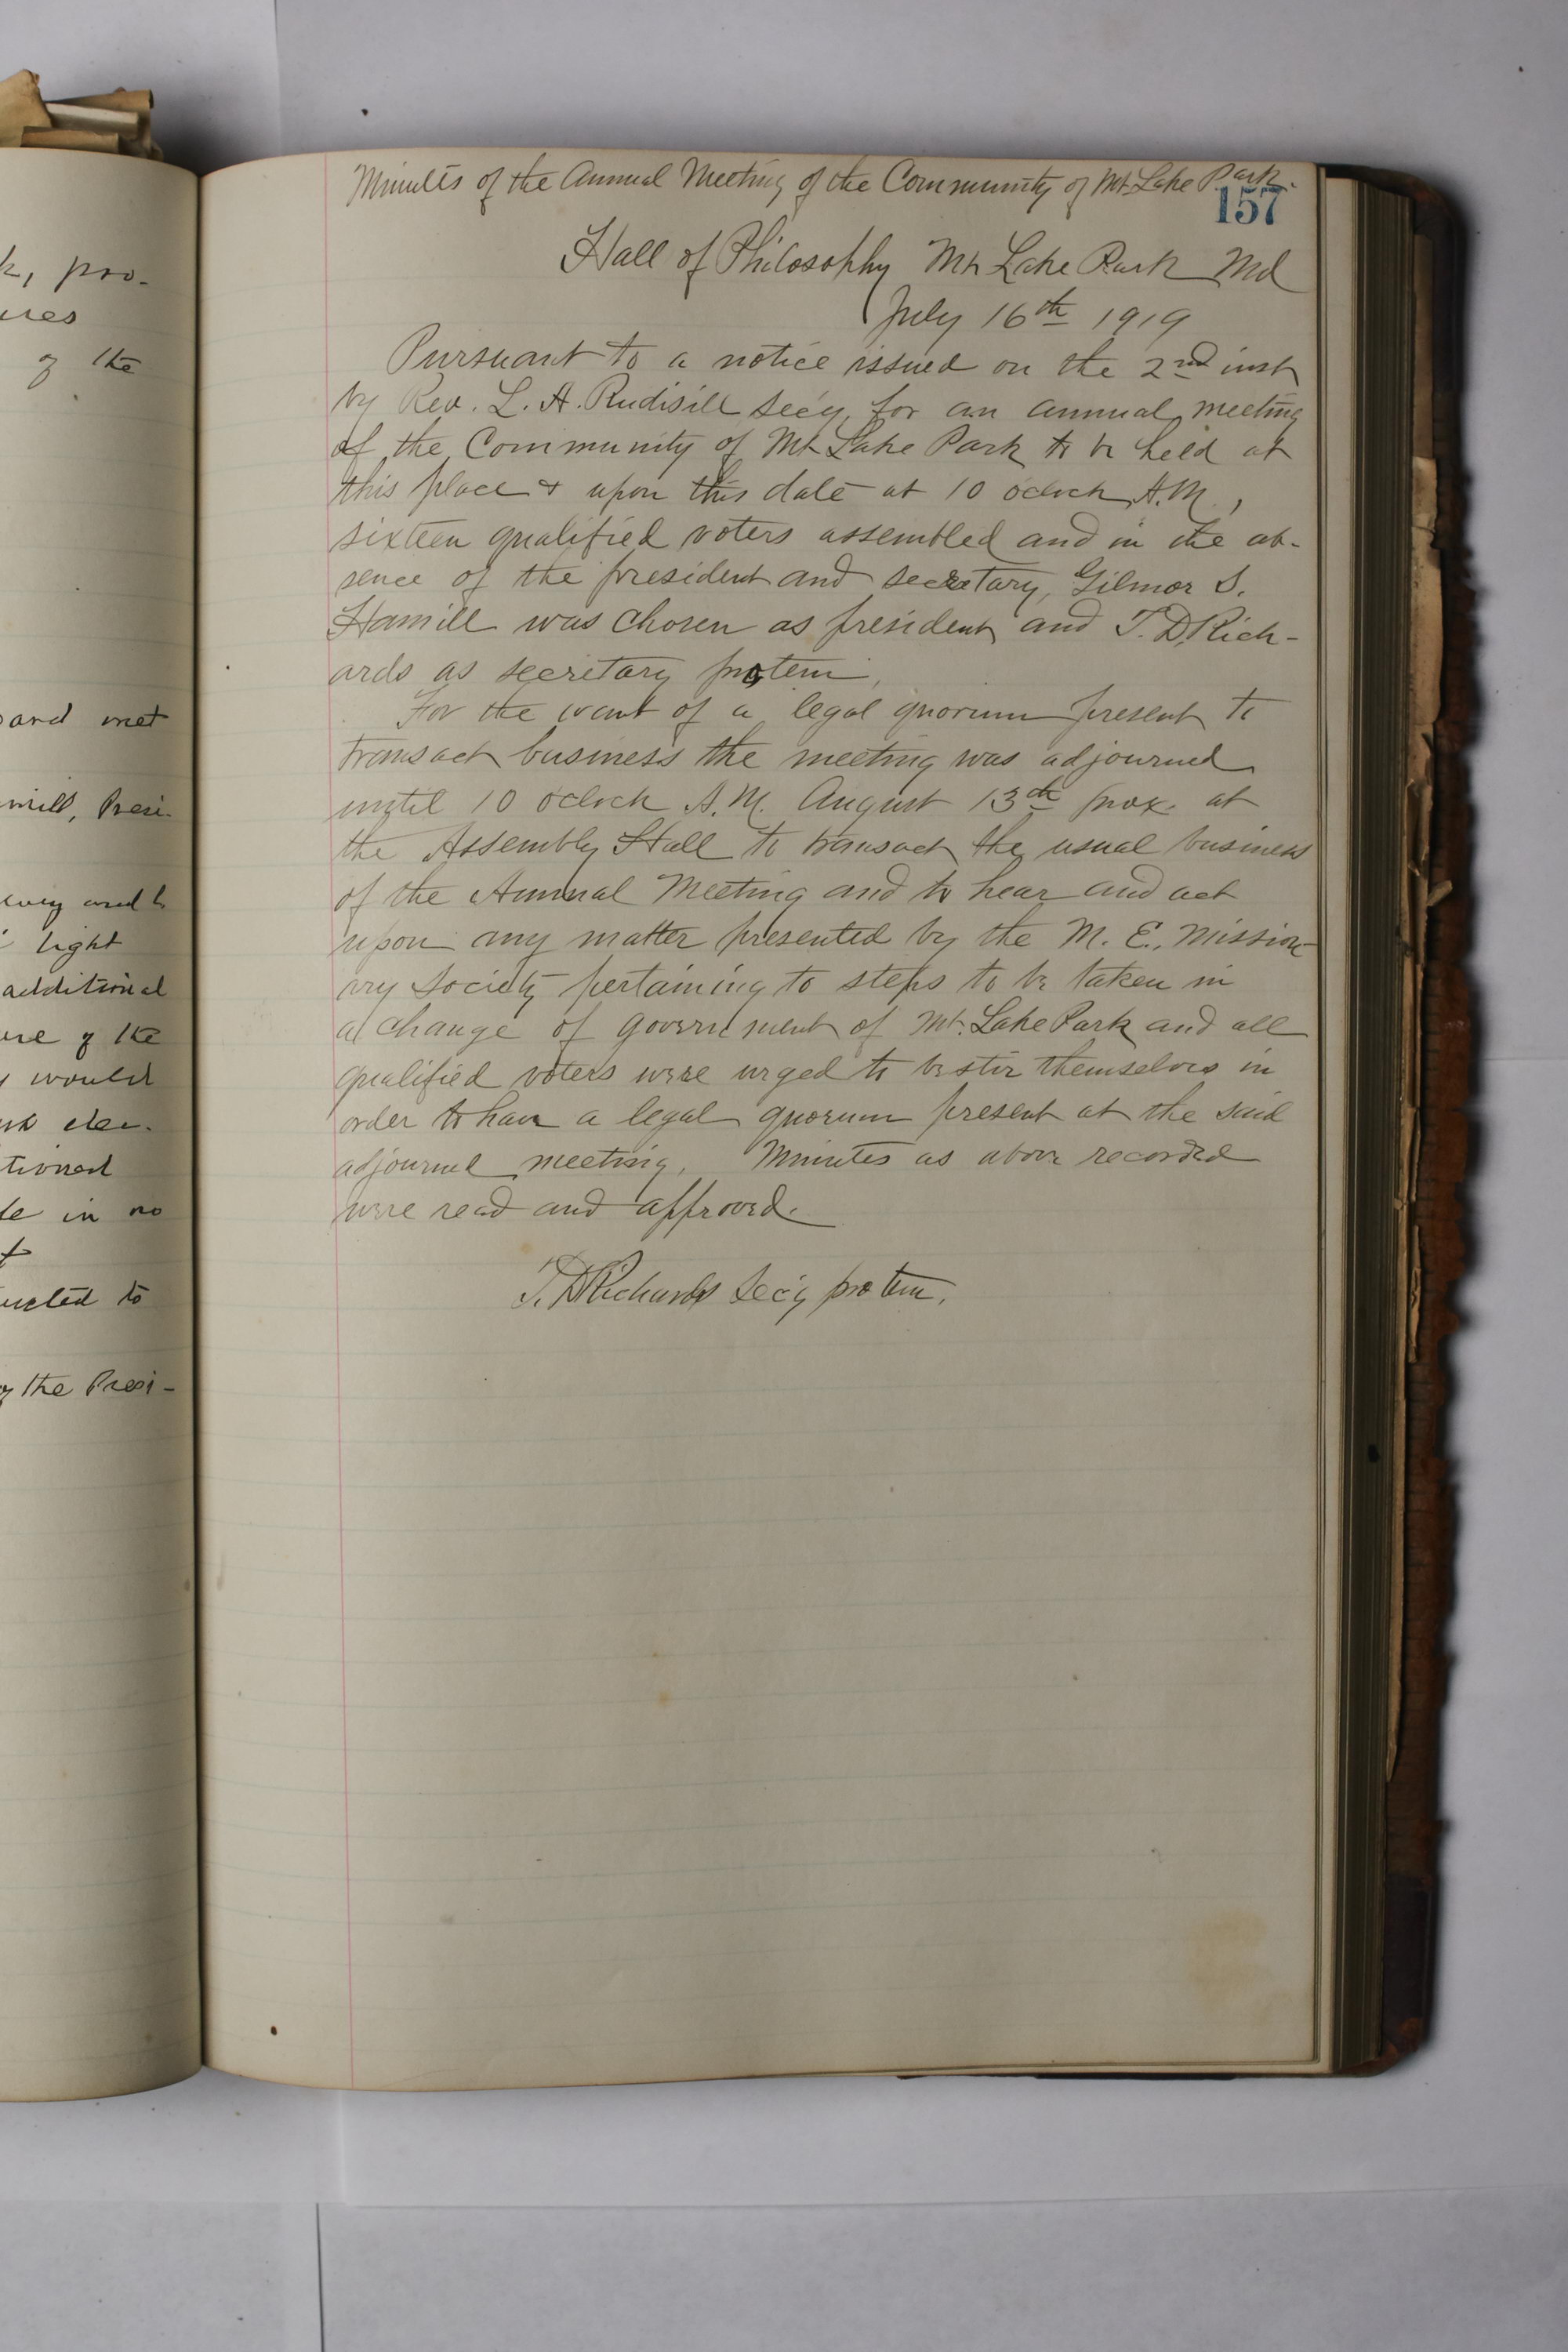 k, pro-
ures
of the
oard met
mill, Presi-
light
additional
ure of the
would
elec-
tioned
le in no
ucted to
of the Presi-
Minutes of the Annual Meeting of the Community of Mt. Lake Park.
157
Hall of Philosophy Mt Lake Park Md
July 16th 1919
Pursuant to a notice issued on the 2nd inst
by Rev. L. A. Rudisill Sec'y, for an annual meeting
of the Community of Mt Lake Park to be held at
this place & upon this date at 10 oclock A.M.,
sixteen qualified voters assembled and in the ab-
sence of the president and secretary, Gilmor S.
Hamill was chosen as president and T. D. Rich-
ards as secretary protem.
For the want of a legal quorum present to
transact business the meeting was adjourned
until 10 oclock A.M. August 13th prox. at
the Assembly Hall to transact the usual business
of the Annual Meeting and to hear and act
upon any matter presented by the M. E. Mission-
ary Society pertaining to steps to be taken in
a change of government of Mt. Lake Park and all
qualified voters were urged to bestir themselves in
order to have a legal quorum present at the said
adjourned meeting. Minutes as above recorded
were read and approved.
T. D. Richards Sec'y pro tem.